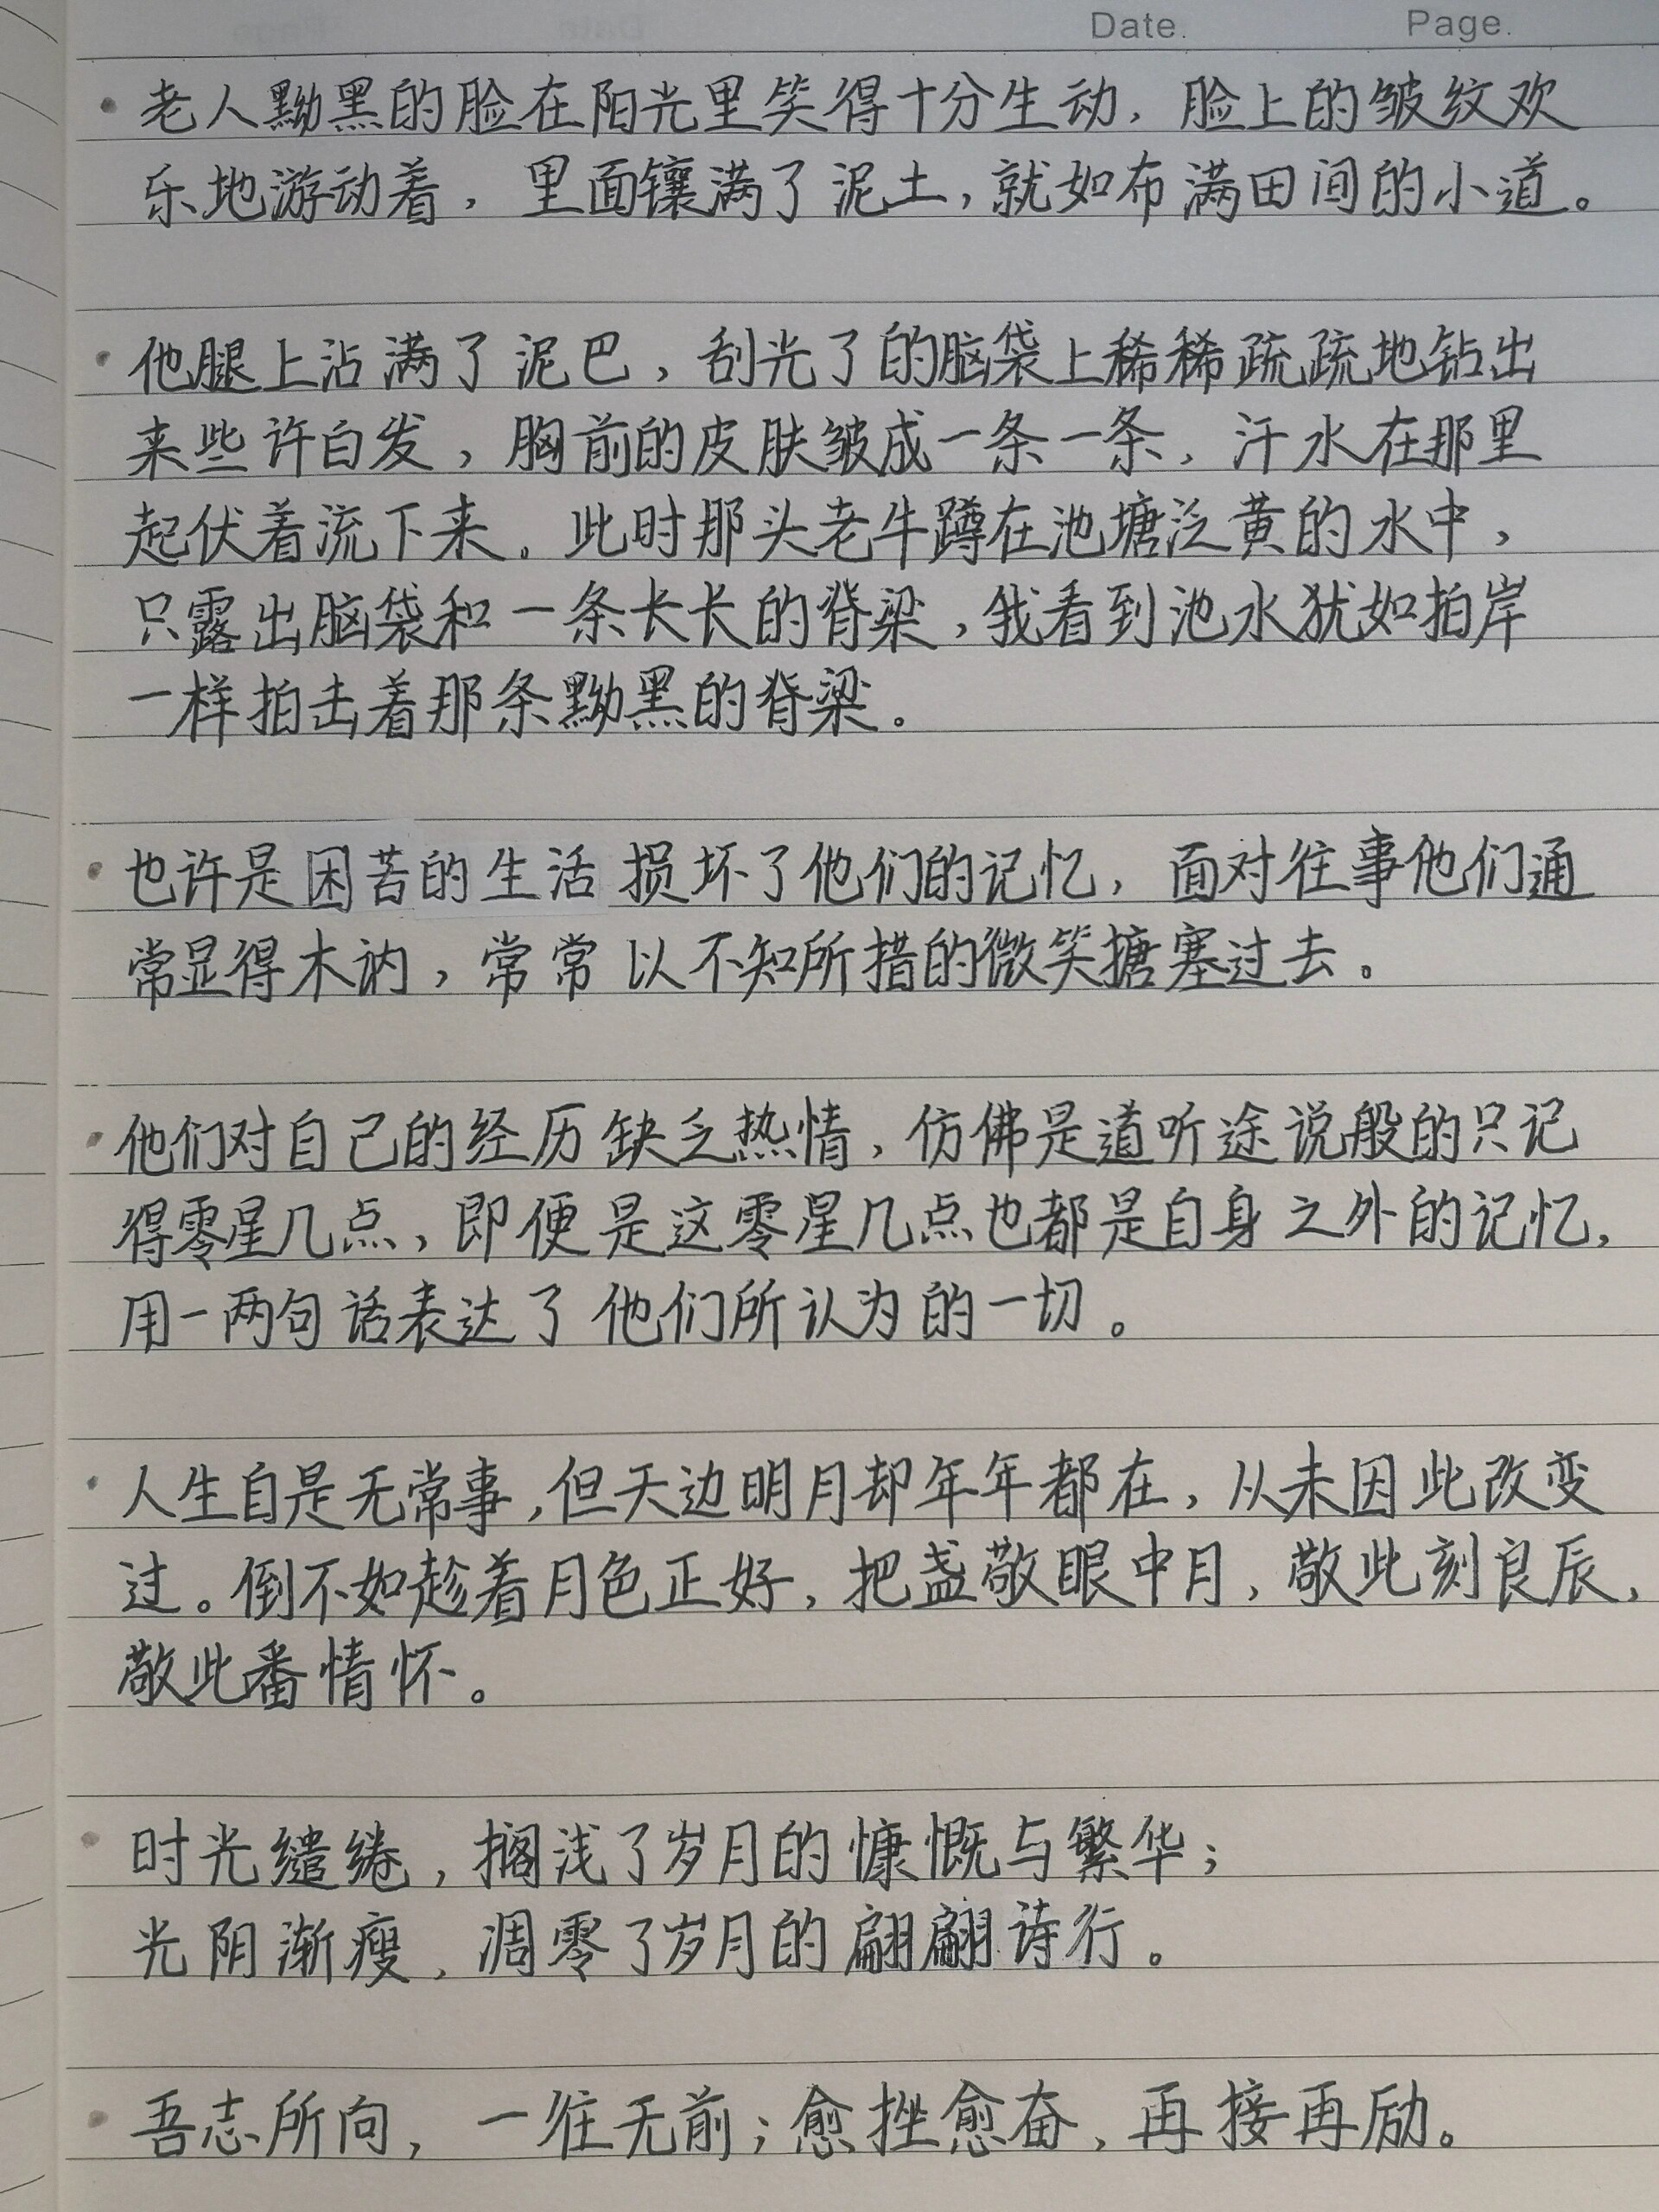 Date. Page.
• 老人黝黑的脸在阳光里笑得十分生动，脸上的皱纹欢
乐地游动着，里面镶满了泥土，就如布满田间的小道。
• 他腿上沾满了泥巴，刮光了的脑袋上稀稀疏疏地钻出
来些许白发，胸前的皮肤皱成一条一条，汗水在那里
起伏着流下来。此时那头老牛蹲在池塘泛黄的水中，
只露出脑袋和一条长长的脊梁，我看到池水犹如拍岸
一样拍击着那条黝黑的脊梁。
• 也许是困苦的生活损坏了他们的记忆，面对往事他们通
常显得木讷，常常以不知所措的微笑搪塞过去。
• 他们对自己的经历缺乏热情，仿佛是道听途说般的只记
得零星几点，即便是这零星几点也都是自身之外的记忆，
用一两句话表达了他们所认为的一切。
• 人生自是无常事，但天边明月却年年都在，从未因此改变
过。倒不如趁着月色正好，把盏敬眼中月，敬此刻良辰，
敬此番情怀。
• 时光缱绻，搁浅了岁月的慷慨与繁华；
光阴渐瘦，凋零了岁月的翩翩诗行。
• 吾志所向，一往无前；愈挫愈奋，再接再励。